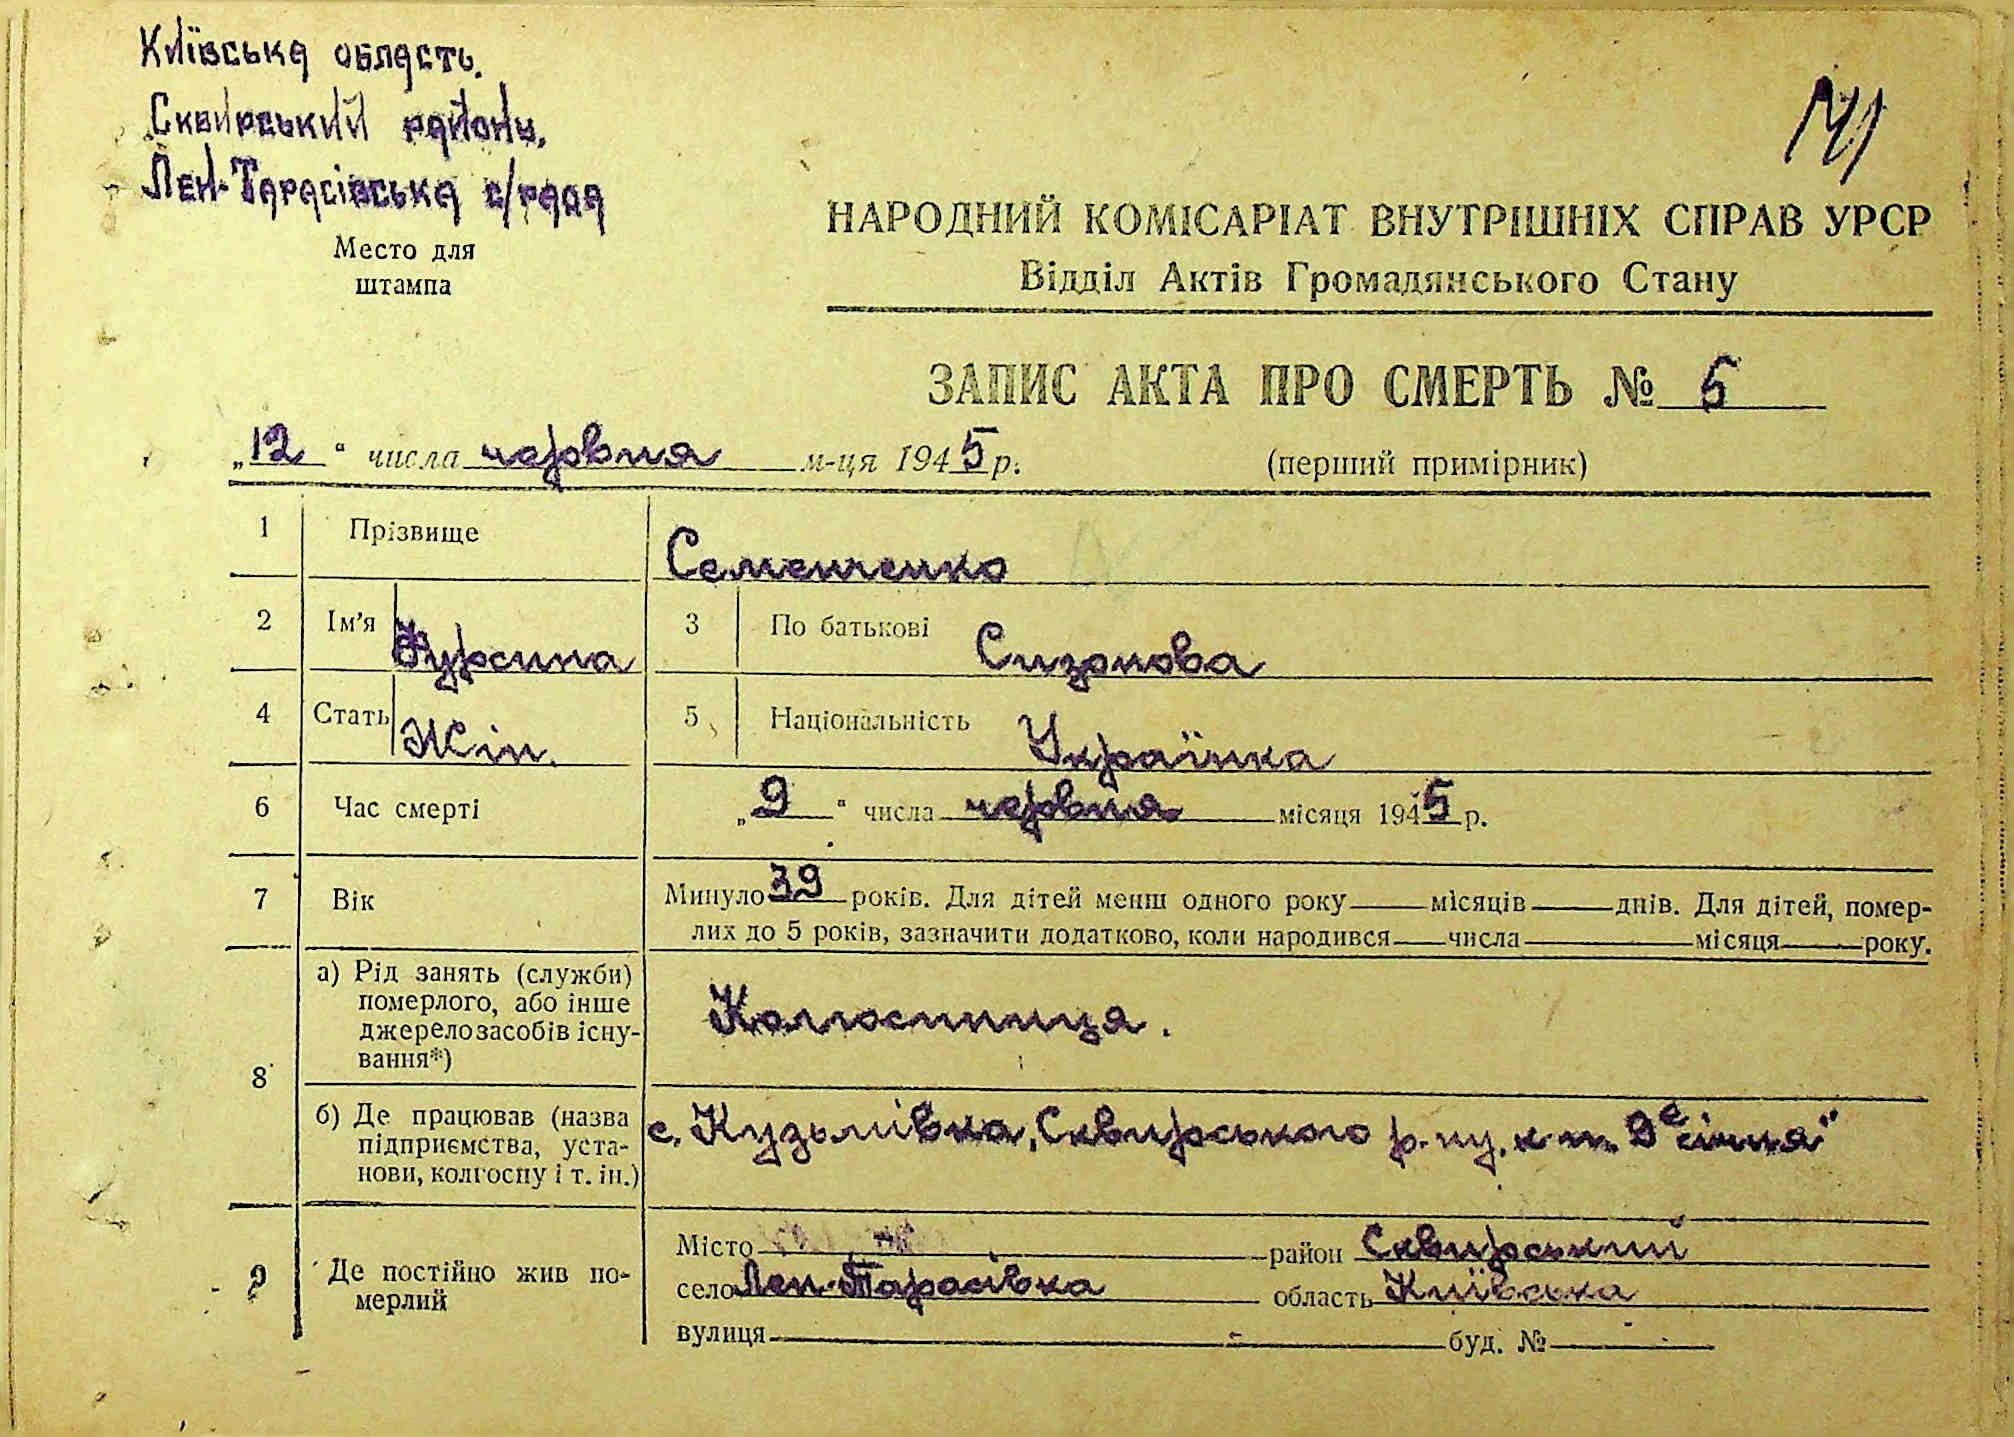 Київська область.
Сквирський району.
Лен-Тарасівська с/рада
Место для
штампа
НАРОДНИЙ КОМІСАРІАТ ВНУТРІШНІХ СПРАВ УРСР
Відділ Актів Громадянського Стану
ЗАПИС АКТА ПРО СМЕРТЬ № 5
„12“ числа червня м-ця 1945 р.
(перший примірник)
1 Прізвище Семененко
2 Ім'я 3 По батькові Сизонова
4 Стать Жін. 5 Національність Українка
6 Час смерті „9“ числа червня місяця 1945 р.
7 Вік Минуло 39 років. Для дітей менш одного року місяців днів. Для дітей, помер-
лих до 5 років, зазначити додатково, коли народився числа місяця року.
8 а) Рід занять (служби)
померлого, або інше
джерело засобів існу-
вання*)
Колгоспниця.
б) Де працював (назва
підприємства, уста-
нови, колгоспу і т. ін.)
с. Кузьмівка, Сквирського р-ну, к-п. 9е січня"
9 Де постійно жив по-
мерлий
Місто район Сквирський
село Лен-Тарасівка область Київська
вулиця буд. №